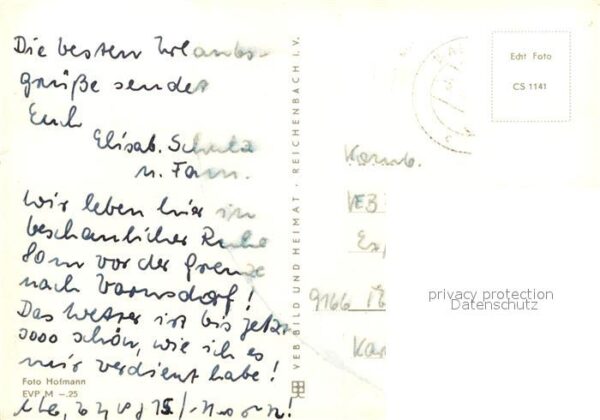 Die besten Urlaubs-
grüße sendet
Euch
Elisab. Schulz
u. Fam.
Wir leben hier in
beschaulicher Ruhe
80m vor der Grenze
nach Varnsdorf!
Das Wetter ist bis jetzt
sooo schön, wie ich es
mir verdient habe!
Foto Hofmann
EVP M –.25
VEB BILD UND HEIMAT · REICHENBACH I. V.
Echt Foto
CS 1141
VEB
9166
privacy protection
Datenschutz